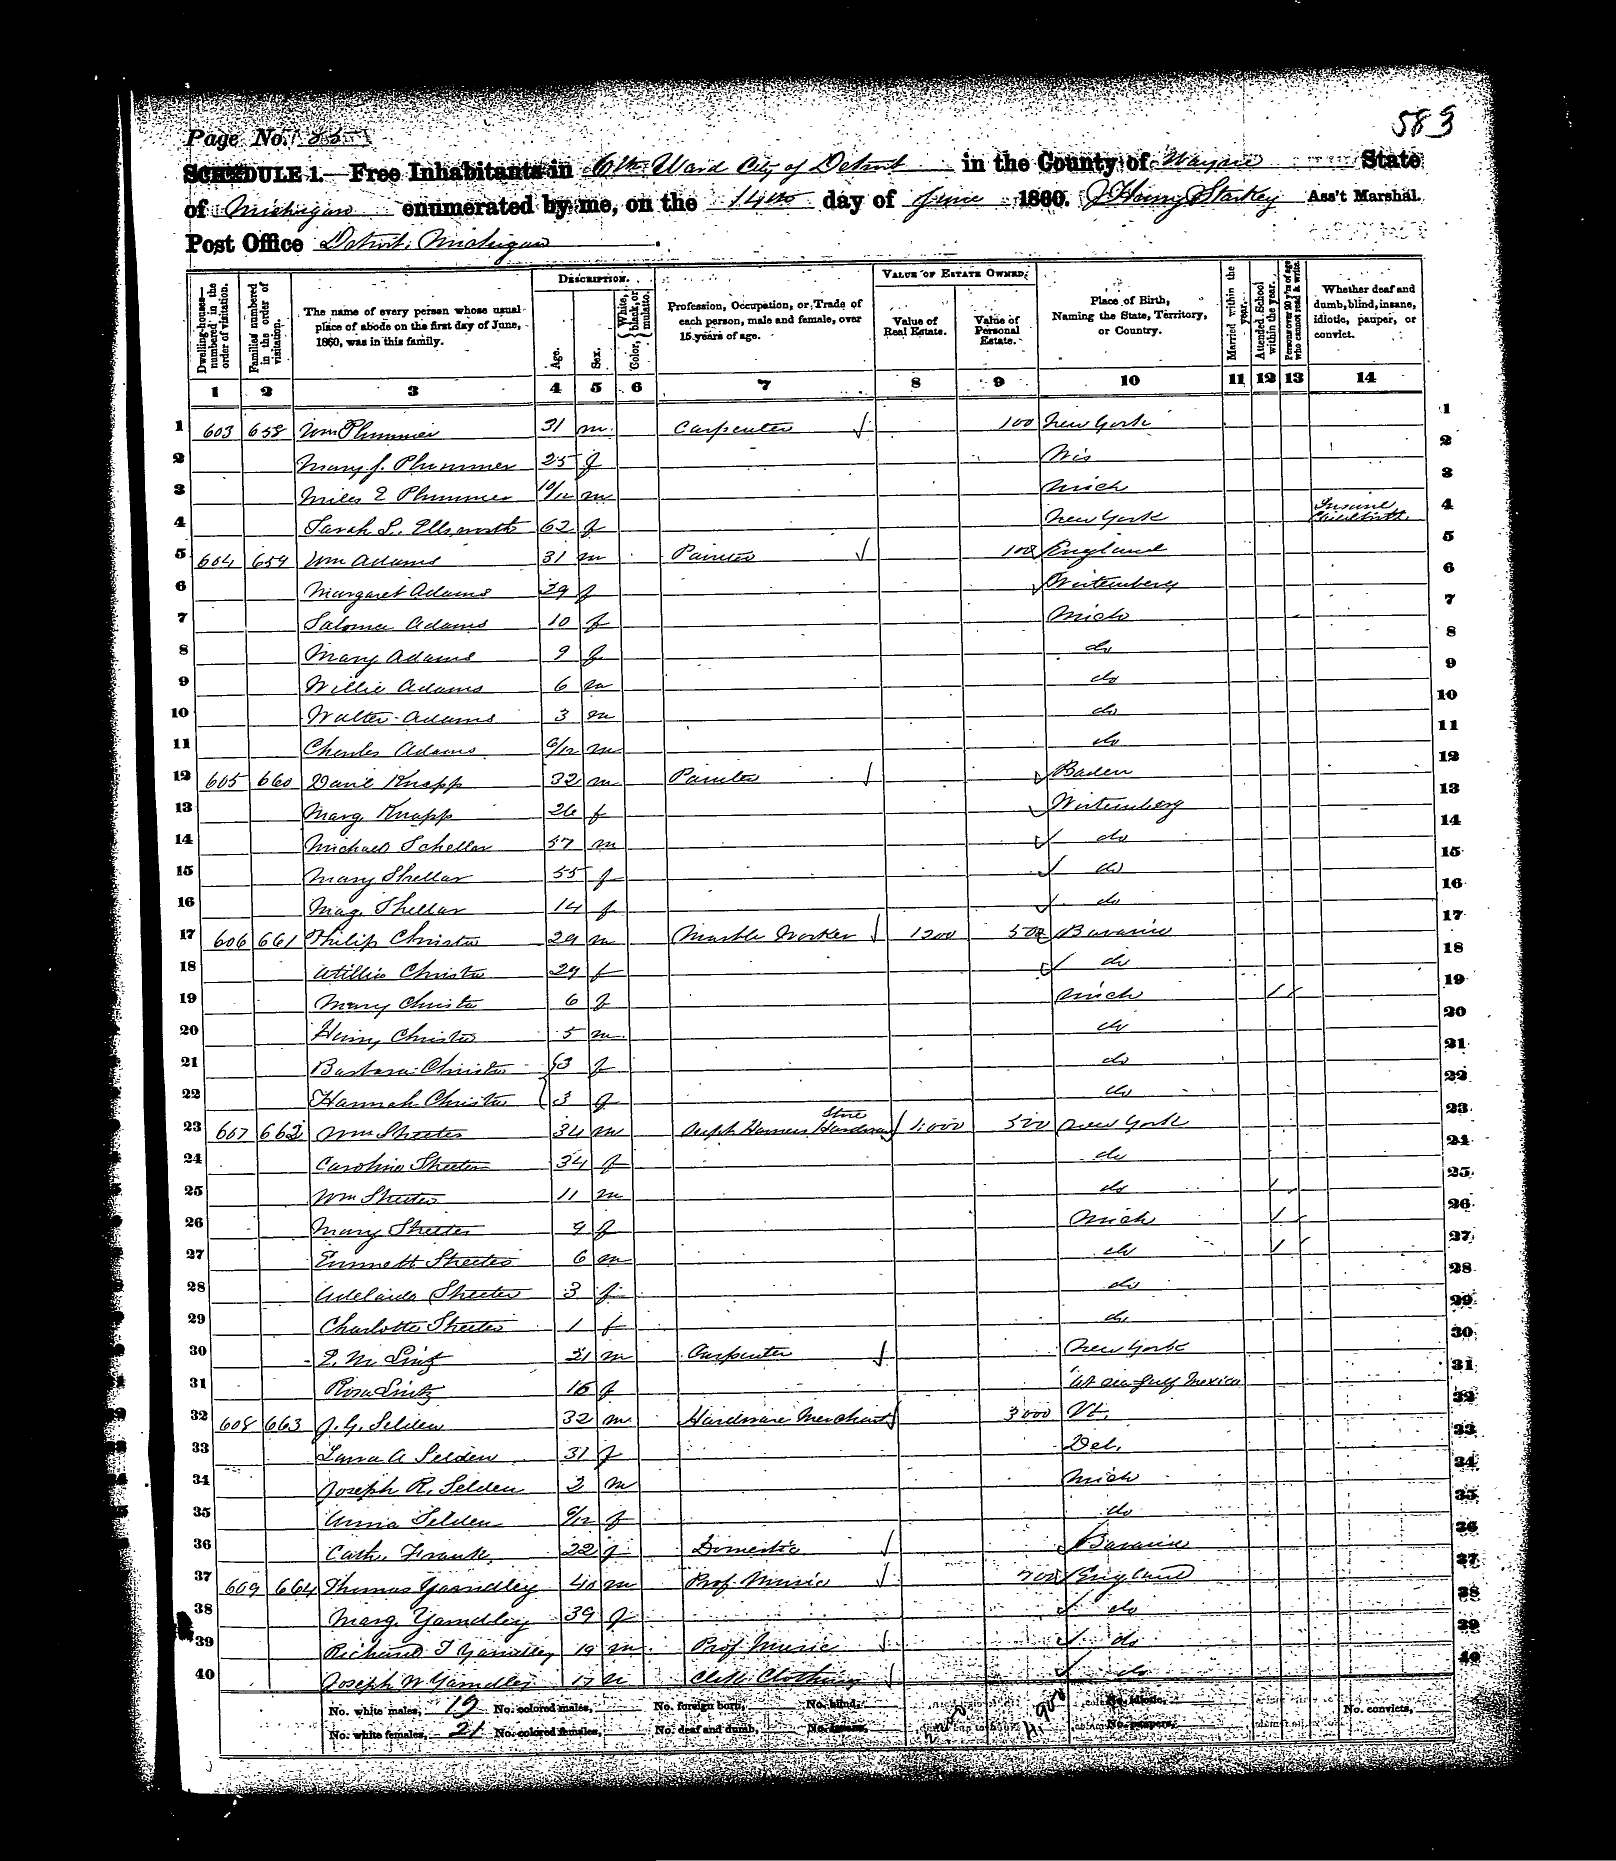 583
Page No.
SCHEDULE 1.—Free Inhabitants in 6th Ward City of Detroit in the County of Wayne State
of Michigan enumerated by me, on the 14th day of June 1860. J Henry Starkey Ass't Marshal.
Post Office Detroit, Michigan
Dwelling-houses—numbered in the order of visitation.
Families numbered in the order of visitation.
The name of every person whose usual place of abode on the first day of June, 1860, was in this family.
Description.
Age.
Sex.
Color, White, black, or mulatto.
Profession, Occupation, or Trade of each person, male and female, over 15 years of age.
Value of Estate Owned.
Value of Real Estate.
Value of Personal Estate.
Place of Birth, Naming the State, Territory, or Country.
Married within the year.
Attended School within the year.
Persons over 20 y'rs of age who cannot read & write.
Whether deaf and dumb, blind, insane, idiotic, pauper, or convict.
1 2 3 4 5 6 7 8 9 10 11 12 13 14
1 603 658 Wm Plummer 31 m Carpenter 100 New York 1
2 Mary J. Plummer 25 f Wis 2
3 Miles E Plummer 10/12 m Mich 3
4 Sarah L. Ellsworth 62 f New York Insane 4
5 604 659 Wm Adams 31 m Painter 100 England 5
6 Margaret Adams 29 f Wirtemberg 6
7 Saloma Adams 10 f Mich 7
8 Mary Adams 9 f do 8
9 Willie Adams 6 m do 9
10 Walter Adams 3 m do 10
11 Charles Adams 6/12 m do 11
12 605 660 Danl Knapp 32 m Painter Baden 12
13 Marg Knapp 26 f Wirtemberg 13
14 Michael Schellar 57 m do 14
15 Mary Shellar 55 f do 15
16 Mag. Shellar 14 f do 16
17 606 661 Philip Christa 29 m Marble Worker 1200 50 Bavaria 17
18 Christa 29 f do 18
19 Mary Christa 6 f Mich 19
20 Henry Christa 5 m do 20
21 Barbara Christa 3 f do 21
22 Hannah Christa 3 f do 22
23 607 662 Wm Streeter 34 m Store 1,000 500 New York 23
24 Caroline Streeter 34 f do 24
25 Wm Streeter 11 m do 25
26 Mary Streeter 9 f Mich 26
27 Emmett Streeter 6 m do 27
28 Adelaide Streeter 3 f do 28
29 Charlotte Streeter 1 f do 29
30 E. M. Lintz 21 m Carpenter New York 30
31 Rosa Lintz 16 f at sea Gulf Mexico 31
32 608 663 J. G. Selden 32 m Hardware Merchant 3000 Vt. 32
33 A Selden 31 f Del. 33
34 Joseph R. Selden 2 m Mich 34
35 Anna Selden 6/12 f do 35
36 Cath. Frank 22 f Domestic Bavaria 36
37 609 664 Thomas Yarndley 40 m Prof. Music 700 England 37
38 Marg. Yarndley 39 f do 38
39 Richard T Yarndley 19 m Prof Music do 39
40 Joseph W Yarndley 17 m Clk. Clothing do 40
No. white males, 19 No. colored males, No. foreign born, No. blind,
No. idiotic,
No. convicts,
No. white females, 21 No. colored females, No. deaf and dumb, No. insane,
No. paupers,